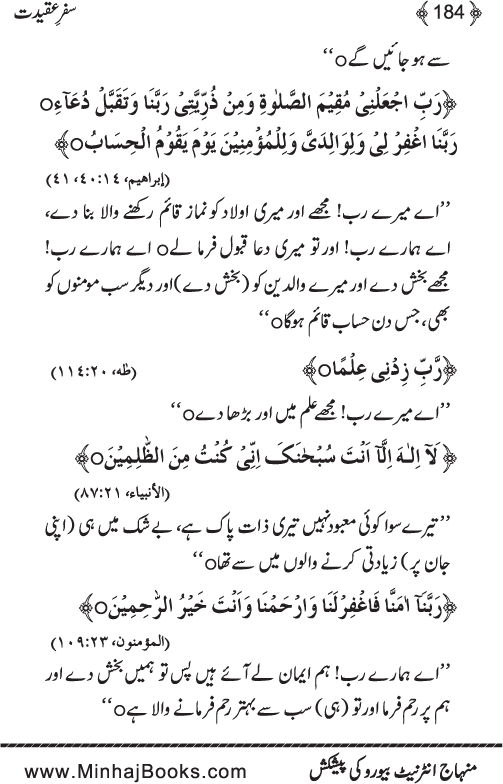 سفرِ عقیدت ﴿184﴾
سے ہو جائیں گے○‘‘
﴿رَبِّ اجْعَلْنِیْ مُقِیْمَ الصَّلٰوةِ وَمِنْ ذُرِّیَّتِیْ رَبَّنَا وَتَقَبَّلْ دُعَآءِ○
رَبَّنَا اغْفِرْ لِیْ وَلِوَالِدَیَّ وَلِلْمُؤْمِنِیْنَ یَوْمَ یَقُوْمُ الْحِسَابُ○﴾
(إبراهيم، ١٤:٤٠، ٤١)
’’اے میرے رب! مجھے اور میری اولاد کو نماز قائم رکھنے والا بنا دے،
اے ہمارے رب! اور تو میری دعا قبول فرما لے○ اے ہمارے رب!
مجھے بخش دے اور میرے والدین کو (بخش دے) اور دیگر سب مومنوں کو
بھی، جس دن حساب قائم ہوگا○‘‘
﴿رَّبِّ زِدْنِی عِلْمًا○﴾ (طه، ٢٠:١١٤)
’’اے میرے رب! مجھے علم میں اور بڑھا دے○‘‘
﴿لَآ اِلٰـهَ اِلَّآ اَنْتَ سُبْحٰنَکَ اِنِّیْ کُنْتُ مِنَ الظّٰلِمِیْنَ○﴾
(الأنبياء، ٢١:٨٧)
’’تیرے سوا کوئی معبود نہیں تیری ذات پاک ہے، بے شک میں ہی (اپنی
جان پر) زیادتی کرنے والوں میں سے تھا○‘‘
﴿رَبَّنَآ اٰمَنَّا فَاغْفِرْلَنَا وَارْحَمْنَا وَاَنْتَ خَیْرُ الرّٰحِمِیْنَ○﴾
(المؤمنون، ٢٣:١٠٩)
’’اے ہمارے رب! ہم ایمان لے آئے ہیں پس تو ہمیں بخش دے اور
ہم پر رحم فرما اور تو (ہی) سب سے بہتر رحم فرمانے والا ہے○‘‘
منہاج انٹرنیٹ بیورو کی پیشکش www.MinhajBooks.com